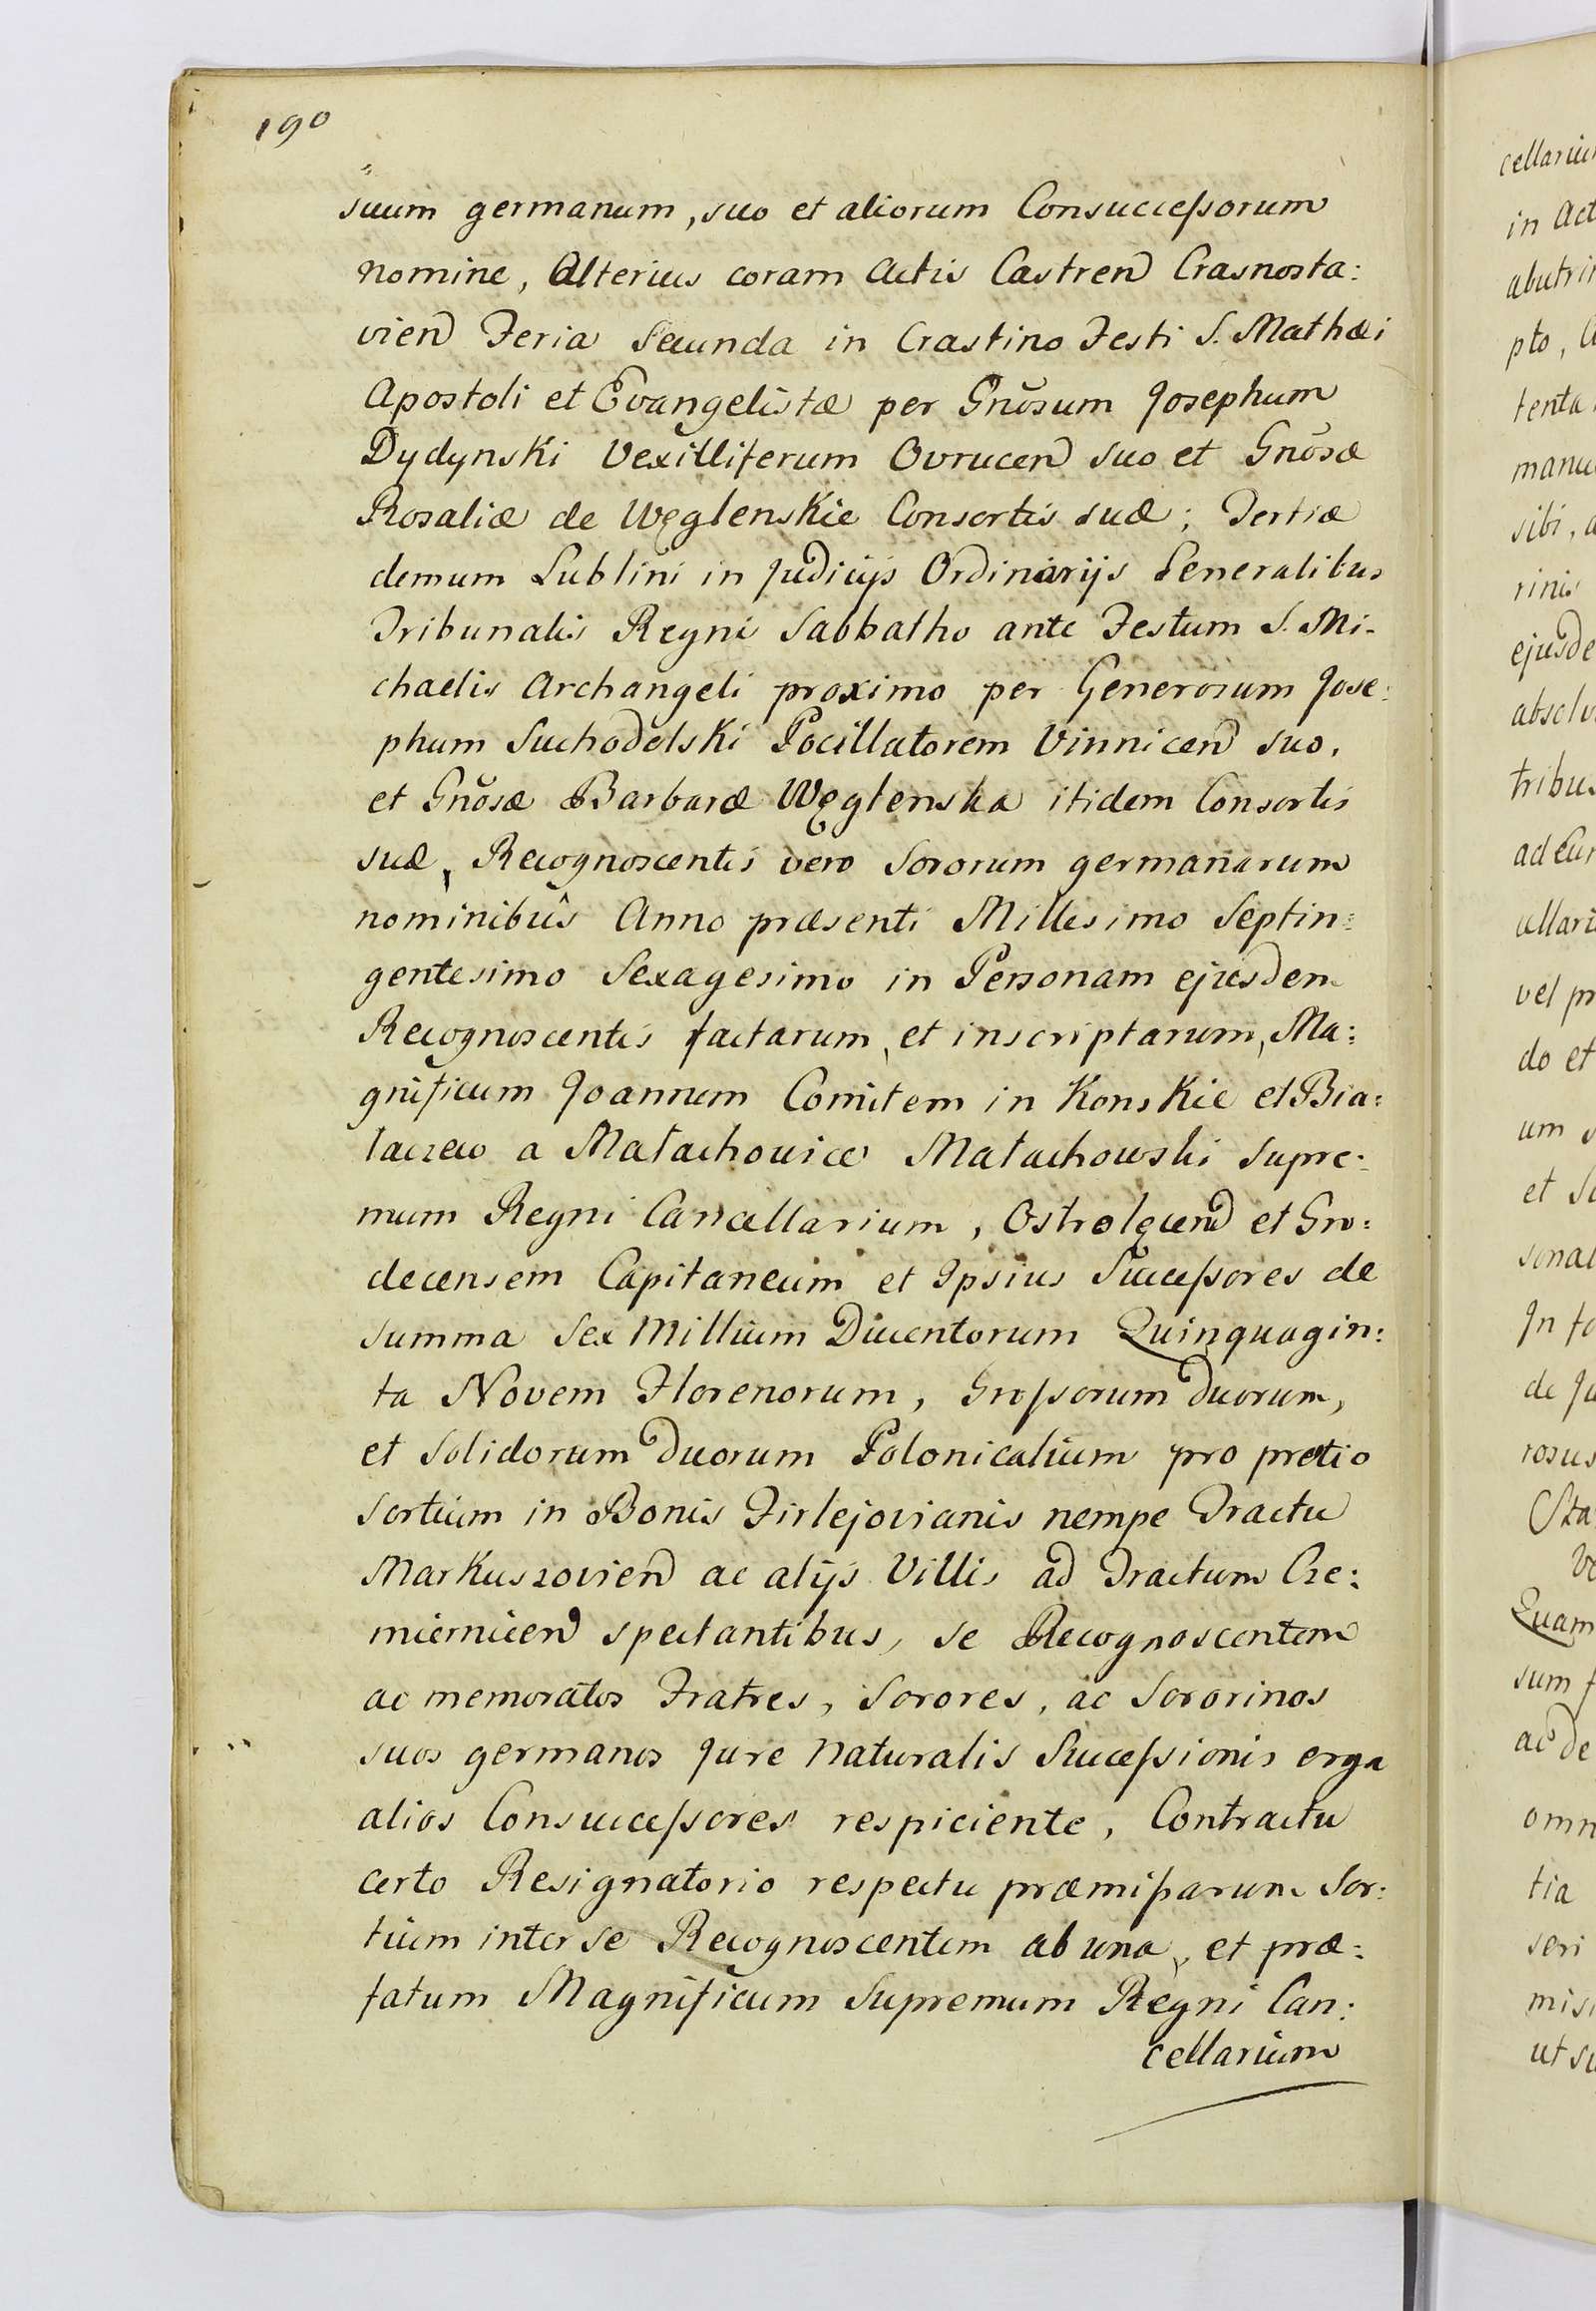 190
suum germanum, suo et aliorum Consuccessorum
nomine, Alterius coram Actis Castren Crasnosta:
vien Feria Secunda in Crastino Festi S. Mathæi
Apostoli et Evangelistæ per Gnõsum Josephum
Dydynski Vexilliferum Ovrucen suo et Gnõsæ
Rosaliæ de Węglenskie Consortis suæ; Tertiæ
demum Lublini in Judicijs Ordinarijs Generalibus
Tribunalis Regni Sabbatho ante Festum S. Mi-
chaelis Archangeli proximo per Generosum Jose:
phum Suchodolski Pocillatorem Vinnicen suo,
et Gnõsæ Barbaræ Węglenska itidem Consortis
suæ, Recognoscentis vero Sororum germanarum
nominibûs Anno præsenti Millesimo Septin:
gentesimo Sexagesimo in Personam ejusdem
Recognoscentis factarum, et inscriptarum, Ma:
gnificum Joannem Comitem in Konskie et Bia:
łaczew a Małachowice Małachowski Supre:
mum Regni Cancellarium, Ostrolęcen et Gro:
decensem Capitaneum et Ipsius Successores de
summa Sex Millium Ducentorum Quinquagin:
ta Novem Florenorum, Grossorum duorum,
et Solidorum duorum Polonicalium pro pretio
Sortium in Bonis Firlejovianis nempe Tractu
Markuszovien ac alijs Villis ad Tractum Cze:
miernicen spectantibus, se Recognoscentem
ac memoratos Fratres, Sorores, ac Sororinos
suos germanos Jure Naturalis Successionis erga
alios Consuccessores respiciente, Contractu
certo Resignatorio respectu præmissarum Sor:
tium inter se Recognoscentem ab una, et præ:
fatum Magnificum Supremum Regni Can:
cellarium
cellarium
in Act
pto,
tenta
manu
sibi, a
rinis
ejusde
tribus
vel pr
do et
um
et
In fo
de
rosus
Quam
sum f
ac de
omn
tia
seri
misi
ut su